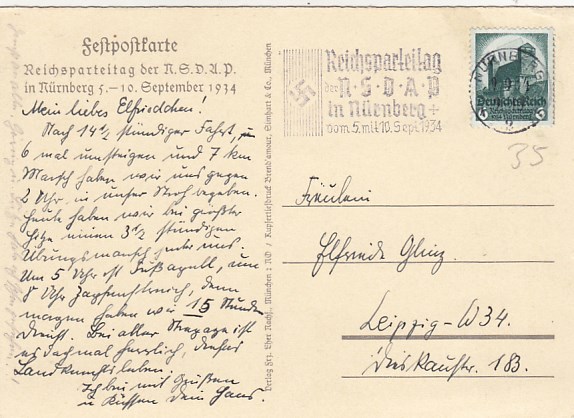 Festpostkarte
Reichsparteitag der N.S.D.A.P.
in Nürnberg 5.–10. September 1934
Mein liebes Elfriedchen!
Nach 14½ stündiger Fahrt,
6 mal umsteigen und 7 km
Marsch haben wir uns gegen
2 Uhr in unser Stroh begeben.
Heute haben wir bei größter
Hitze einen 3½ stündigen
Übungsmarsch hinter uns.
Um 5 Uhr ist Fußappell, um
8 Uhr Zapfenstreich, dann
haben wir 15 Stunden
Dienst. Bei aller Strapaze ist
es doch mal herrlich, dieses
Landsknechtsleben.
Ich bin mit Grüßen
u. Küssen Dein Hans.
Verlag Frz. Eher Nachf., München 2 NO / Kupfertiefdruck Brend'amour, Simhart & Co., München
Reichsparteitag
der N·S·D·A·P
in Nürnberg +
vom 5. mit 10. Sept. 1934
NÜRNBERG
Deutsches Reich
Reichsparteitag
1934 Nürnberg
6 6
35
Fräulein
Elfriede Glinz.
Leipzig-W34.
Dieskaustr. 183.